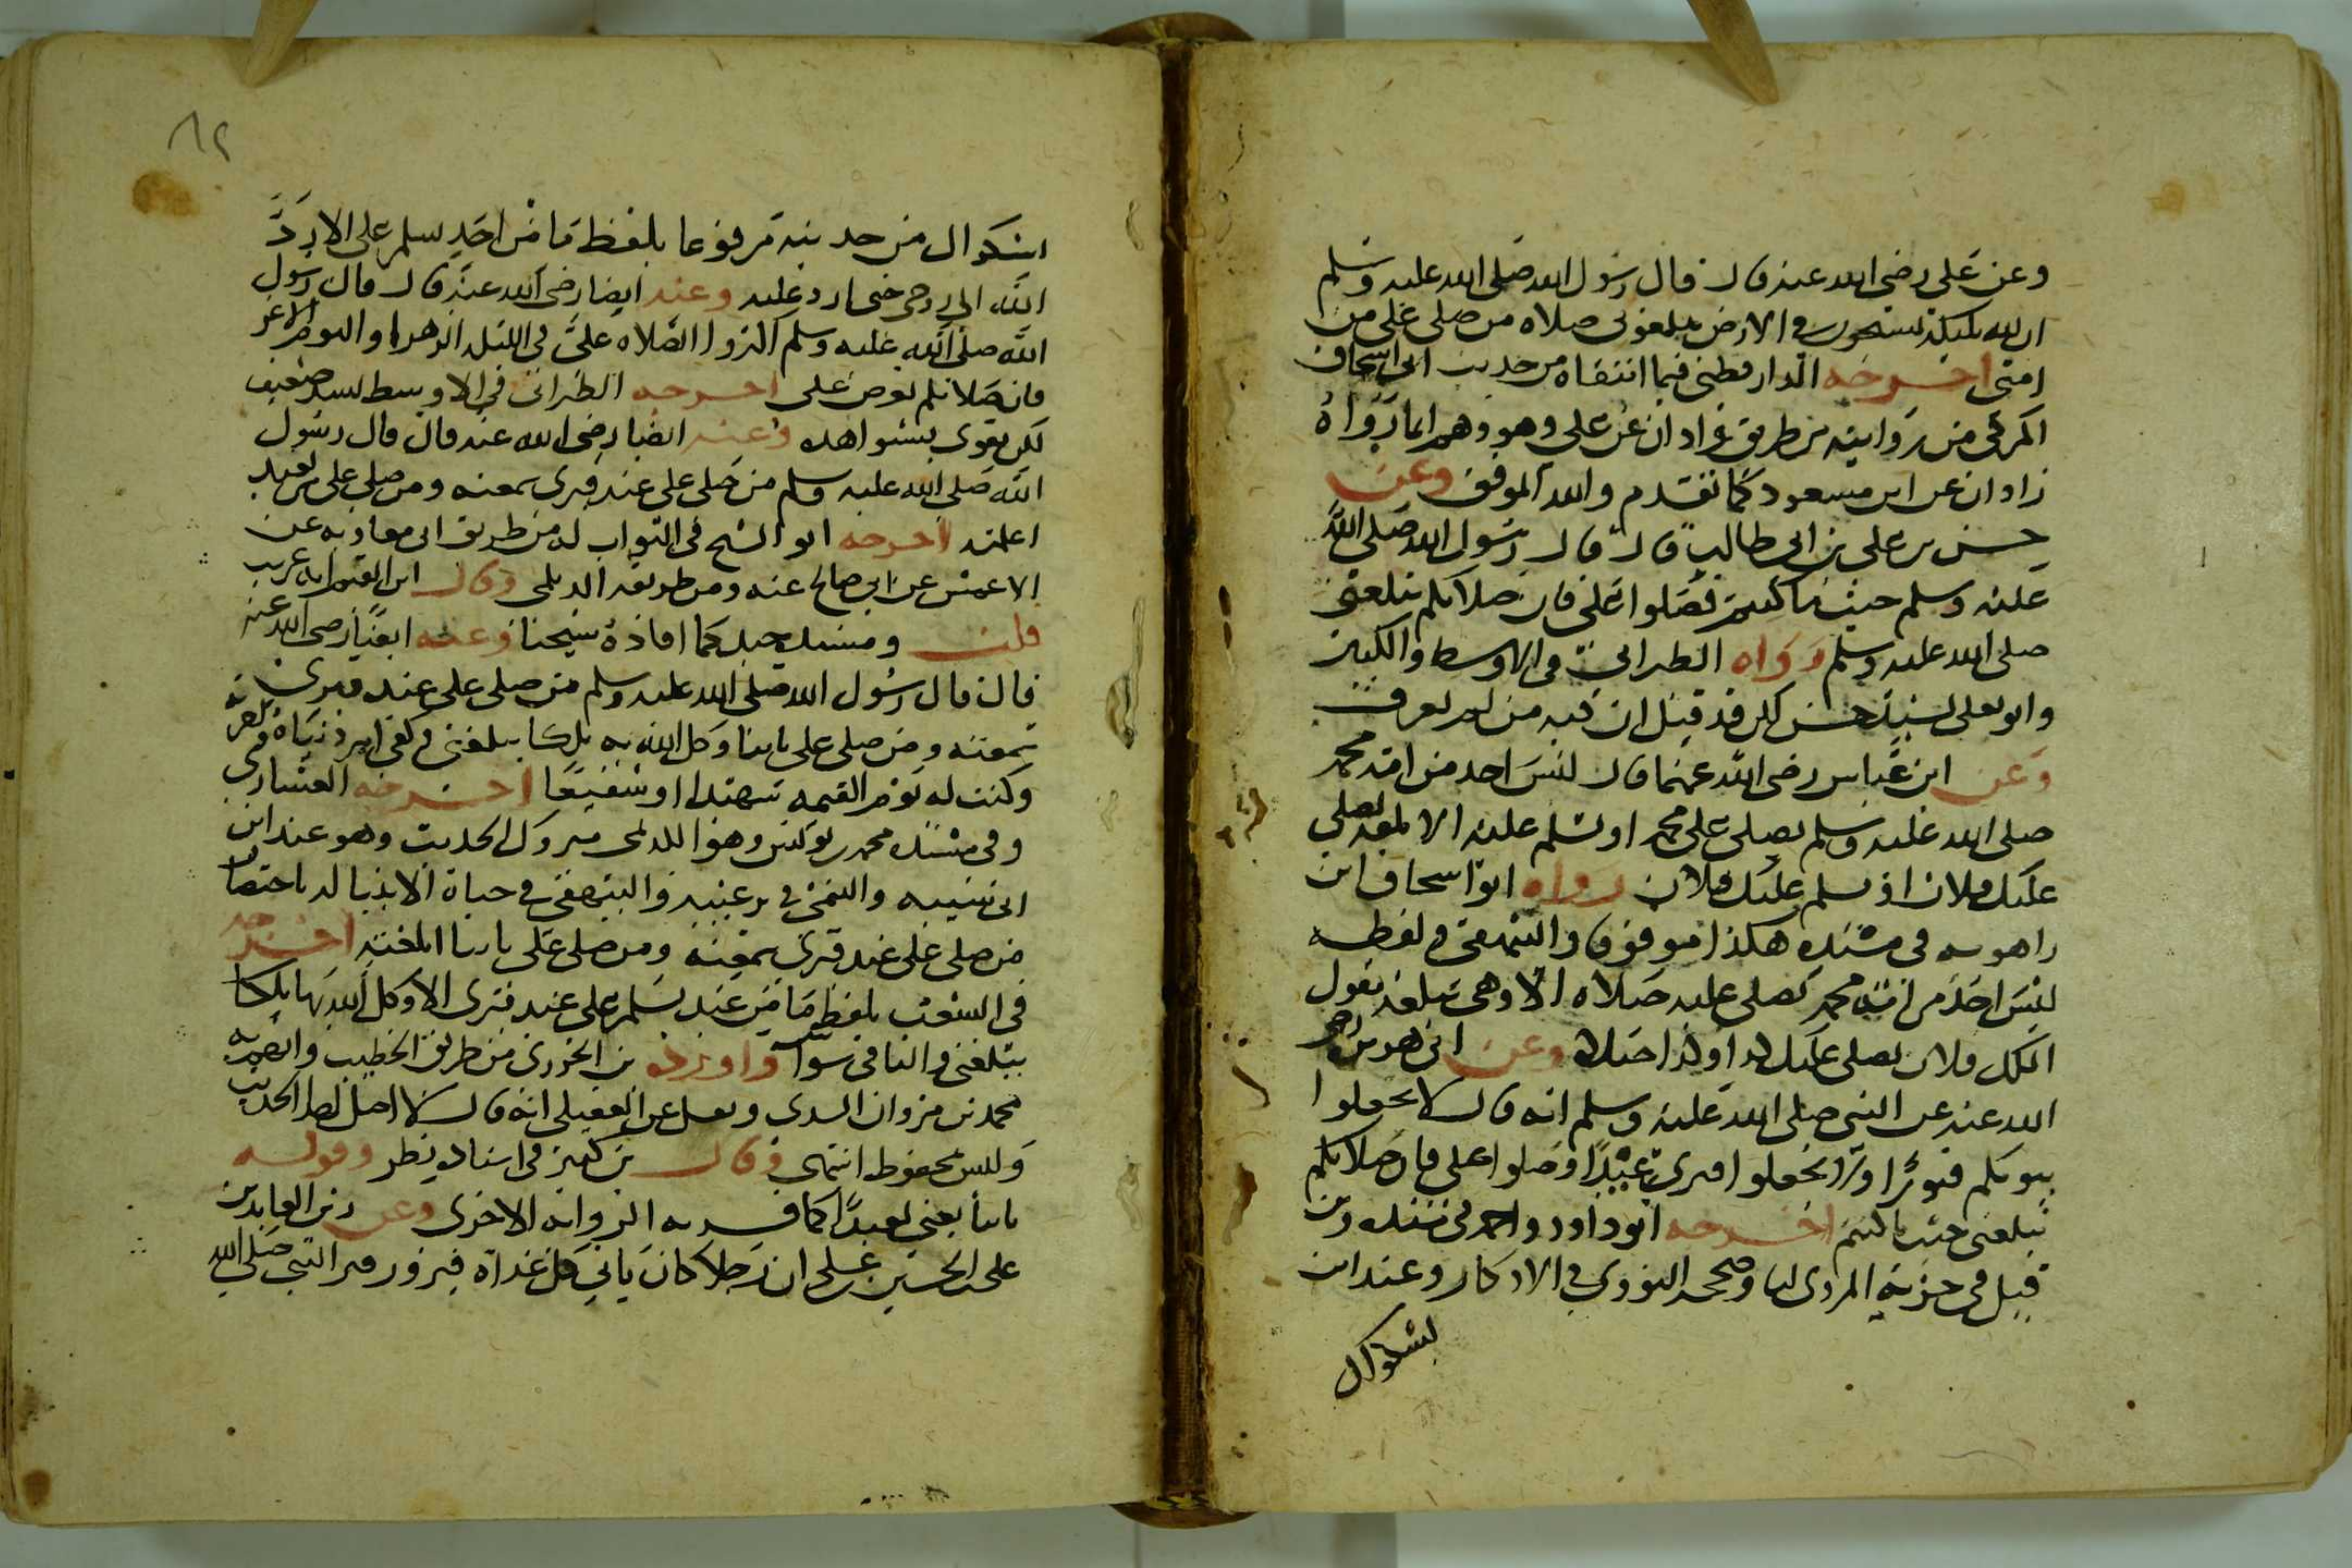 وعن على رضى الله عنه قال قال رسول الله صلى الله عليه وسلم
ان لله ملىكة يسيحون في الارض يبلغونى صلاه من صلى على من
امتى اخرجه الدارقطنى فيما انتقاه من حديث ابى اسحاق
المزكى من روايته من طريق زادان عن على وهو وهم انما رواه
زادان عن ابن مسعود كما تقدم والله الموفق وعن
حسن بن على بن ابى طالب قال قال رسول الله صلى الله
عليه وسلم حيث ما كنتم فصلوا على فان صلاتكم تبلغنى
صلى الله عليه وسلم رواه الطبرانى فى الاوسط والكبير
وابو يعلى بسند حسن لكن قد قيل ان فيه من لم يعرف
وعن ابن عباس رضى الله عنهما قال ليس احد من امة محمد
صلى الله عليه وسلم يصلى على محمد او يسلم عليه الا بلغه يصلى
عليك فلان او يسلم عليك فلان رواه ابو اسحاق ابن
راهويه فى مسنده هكذا موقوفا والبيهقى ولفظه
ليس احد من امة محمد يصلى عليه صلاه الا وهى تبلغه يقول
الملك فلان يصلى عليك كذا وكذا صلاة وعن ابى هريرة رضى
الله عنه عن النبى صلى الله عليه وسلم انه قال لا تجعلوا
بيوتكم قبورا ولا تجعلوا قبرى عيدا وصلوا على فان صلاتكم
تبلغنى حيث ما كنتم اخرجه ابو داود واحمد فى مسنده وابن
فيل فى جزئه المروى لنا وصححه النووي في الاذكار وعند ابن
بشكوال
٨٢
بشكوال من حديثه مرفوعا بلفظ ما من احد يسلم على الا رد
الله الى روحى حتى ارد عليه وعنه ايضا رضى الله عنه قال قال رسول
الله صلى الله عليه وسلم اكثروا الصلاه على فى الليله الزهرا واليوم الاغر
فان صلاتكم تعرض على اخرجه الطبرانى فى الاوسط بسند ضعيف
لكن يقوى بشواهده وعنه ايضا رضى الله عنه قال قال رسول
الله صلى الله عليه وسلم من صلى على عند قبرى سمعته ومن صلى على من بعيد
اعلمته اخرجه ابو الشيخ فى الثواب له من طريق ابى معاويه عن
الاعمش عن ابى صالح عنه ومن طريقه الديلمى وقال ابن القيم انه غريب
قلت وسنده جيد كما افاده شيخنا وعنه ايضا رضى الله عنه
قال قال رسول الله صلى الله عليه وسلم من صلى على عند قبرى
سمعته ومن صلى على نائيا وكل الله به ملكا يبلغنى وكفى امر دنياه واخرته
وكنت له يوم القيمه شهيدا او شفيعا اخرجه العشارى
وفى سنده محمد بن يونس وهو الكديمى متروك الحديث وهو عند ابن
ابى شيبه والتيمى فى ترغيبه والبيهقى في حياة الانبيا له باختصار
من صلى على عند قبرى سمعته ومن صلى على نائيا ابلغته اخرجه
فى الشعب بلفظ ما من عبد يسلم على عند قبرى الا وكل الله بها ملكا
يبلغنى والباقى سوآ واورده بن الجوزى من طريق الخطيب واتهم به
محمد بن مروان السدى ونقل عن العقيلى انه قال لا اصل لهذا الحديث
وليس بمحفوظ انتهى وقال بن كثير فى اسناده نظر وقوله
نائيا يعني بعيدا كما فسر به الروايه الاخرى وعن زين العابدين
على بن الحسين بن على ان رجلا كان ياتي كل غداة فيزور قبر النبى صلى الله